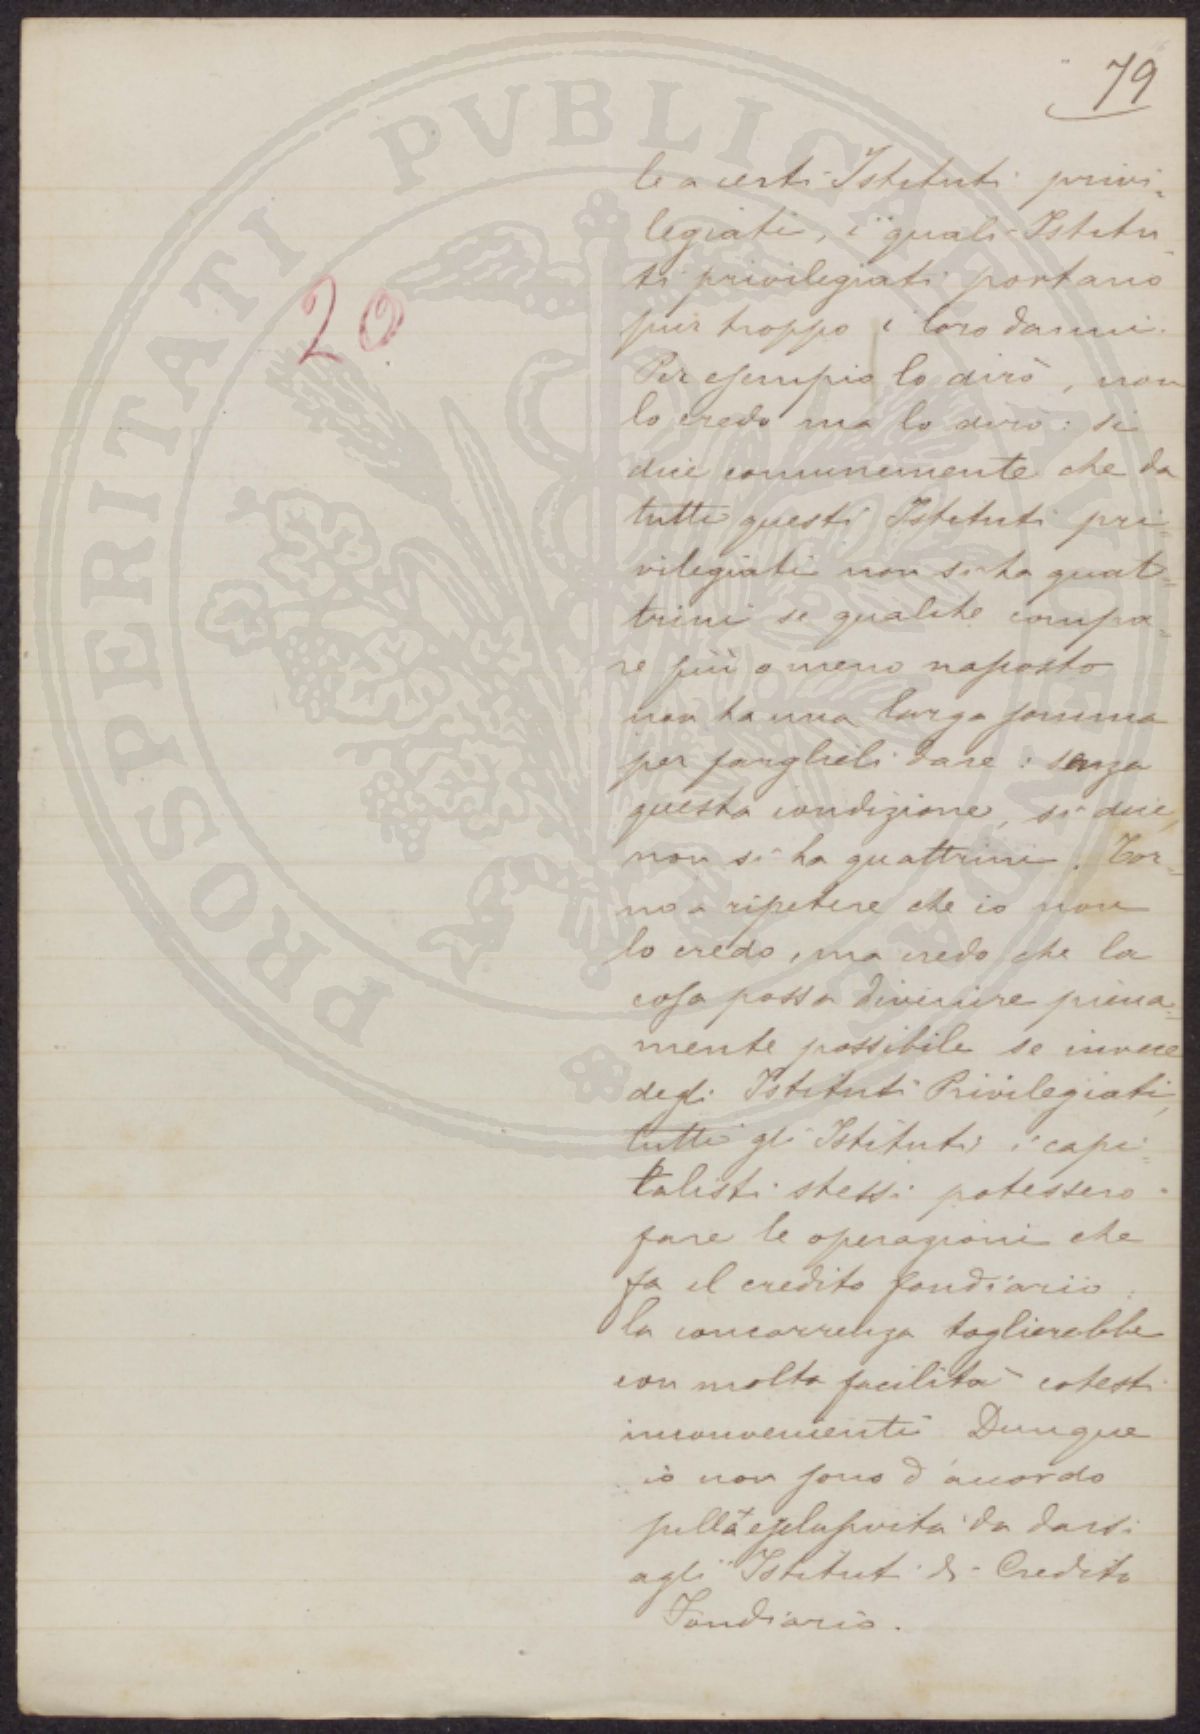 79
20
le a certi Istituti privi-
legiati, i quali Istitu-
ti privilegiati portano
pur troppo i loro danni.
Per esempio lo dirò, non
lo credo ma lo dirò: si
dice comunemente che da
tutti questi Istituti pri-
vilegiati non si ha quat-
trini se qualche compa-
re più o meno nascosto
non ha una larga somma
per farglieli dare: senza
questa condizione, si dice,
non si ha quattrini. Tor-
no a ripetere che io non
lo credo, ma credo che la
cosa possa divenire piena-
mente possibile se invece
degli Istituti Privilegiati,
tutti gli Istituti, i capi-
talisti stessi potessero
fare le operazioni che
fa il credito fondiario.
la concorrenza toglierebbe
con molta facilità cotesti
inconvenienti. Dunque
io non sono d'accordo
sulla esclusività da darsi
agli Istituti di Credito
Fondiario.
PROSPERITATI PVBLICAE